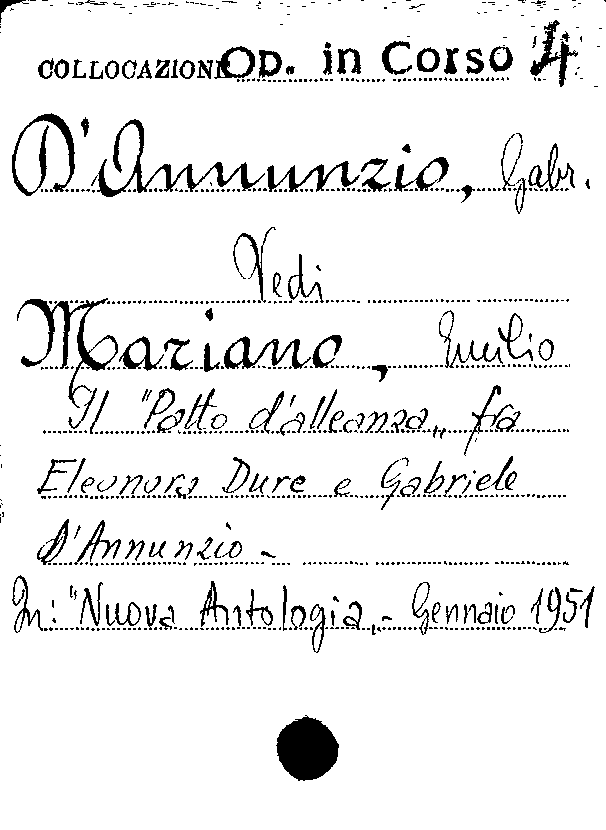 COLLOCAZIONE OD. in Corso 4
D'Annunzio, Gabr.
Vedi
Mariano, Emilio
Il "Patto d'alleanza„ fra
Eleonora Duse e Gabriele
D'Annunzio -
In: "Nuova Antologia„ - Gennaio 1951